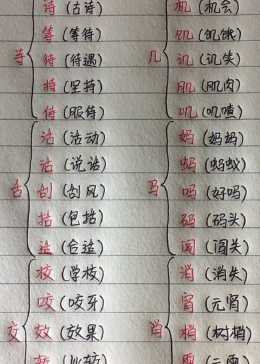 寺
诗(古诗)
等(等待)
待(待遇)
持(坚持)
侍(服侍)
舌
活(活动)
话(说话)
刮(刮风)
括(包括)
适(合适)
交
校(学校)
咬(咬牙)
效(效果)
几
机(机会)
饥(饥饿)
讥(讥笑)
肌(肌肉)
叽(叽喳)
马
妈(妈妈)
蚂(蚂蚁)
吗(好吗)
码(码头)
闯(闯关)
肖
消(消失)
宵(元宵)
梢(树梢)